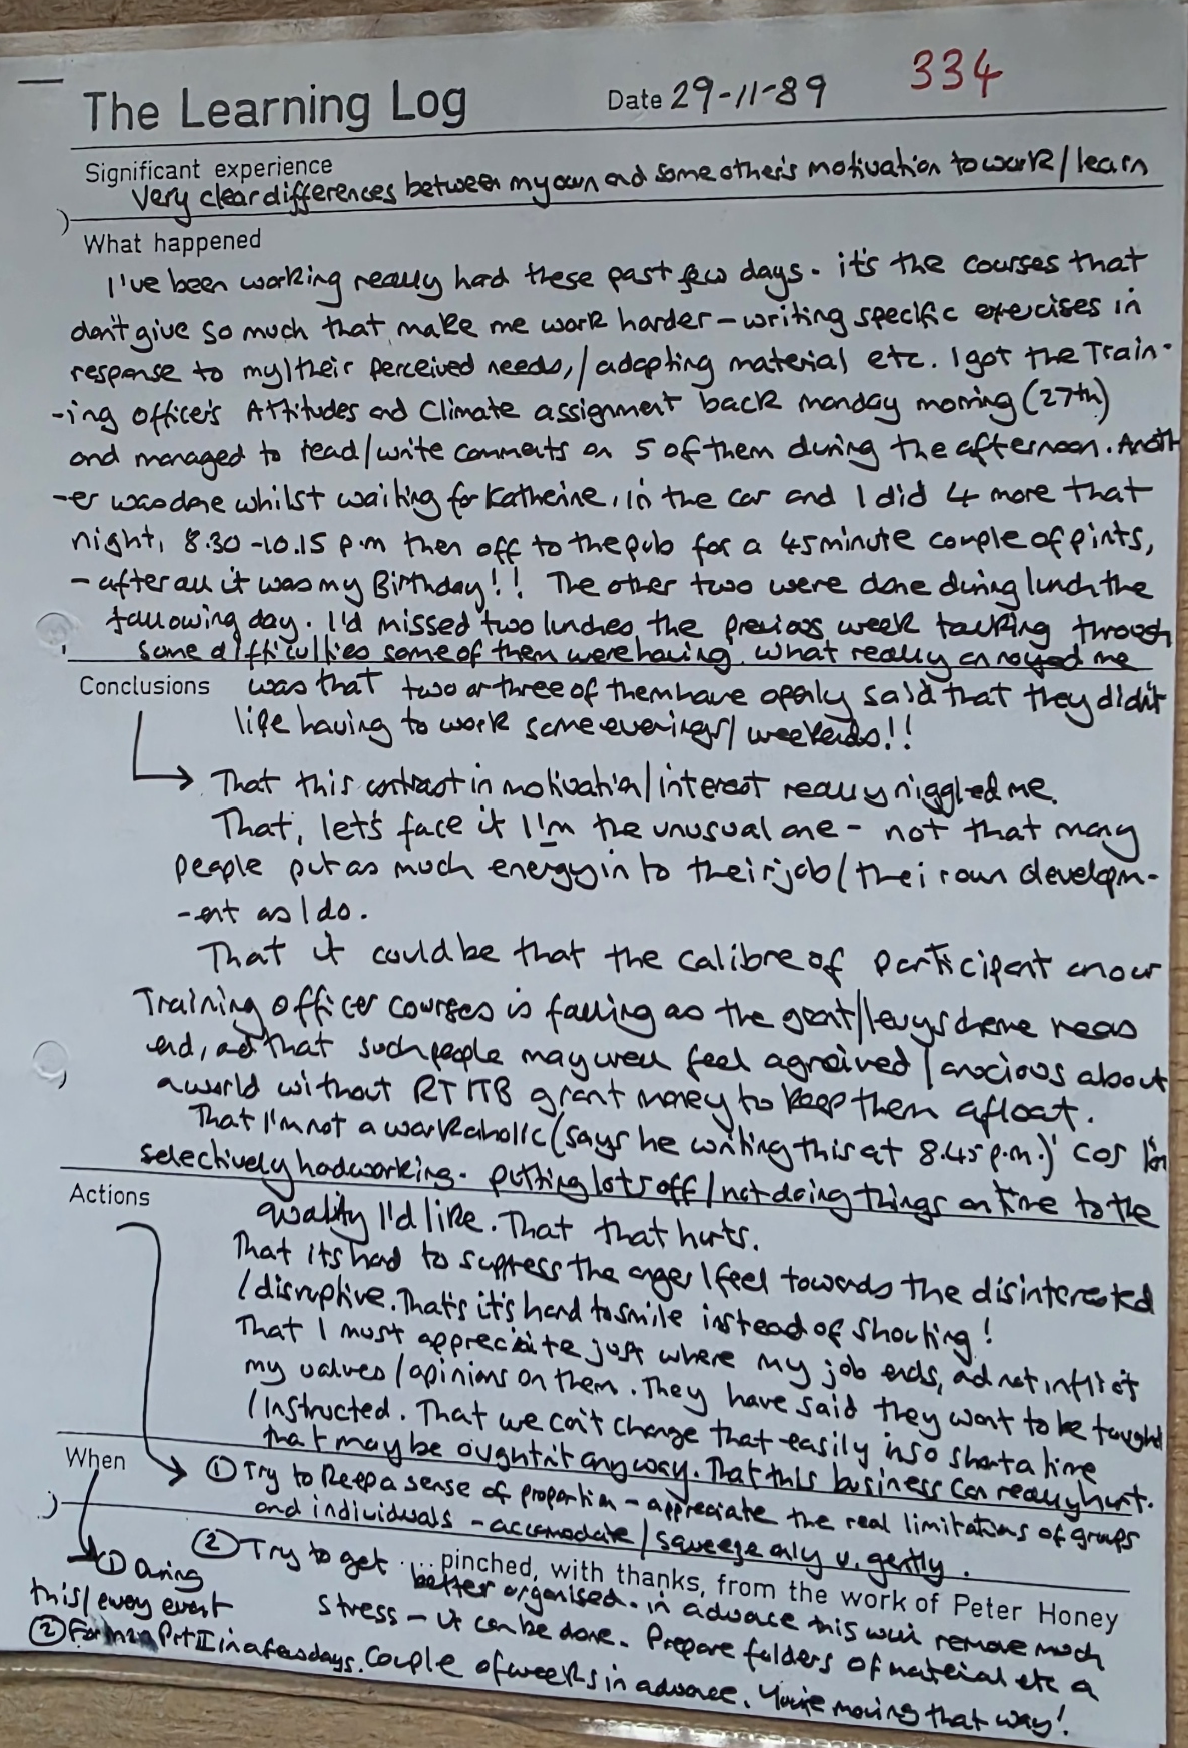 334
The Learning Log
Date 29-11-89
Significant experience
Very clear differences between my own and some other's motivation to work/learn
What happened
I've been working really hard these past few days. it's the courses that
don't give so much that make me work harder - writing specific exercises in
response to my/their perceived needs,/adapting material etc. I got the Train-
-ing officer's Attitudes and Climate assignment back monday morning (27th)
and managed to read/write comments on 5 of them during the afternoon. Anoth
-er was done whilst waiting for Katherine, in the car and I did 4 more that
night, 8.30-10.15 p.m then off to the pub for a 45 minute couple of pints,
- after all it was my Birthday!! The other two were done during lunch the
following day. I'd missed two lunches the previous week talking through
some difficulties some of them were having. What really annoyed me
Conclusions
was that two or three of them have openly said that they didn't
like having to work some evenings/weekends!!
That this contrast in motivation/interest really niggled me.
That, let's face it I'm the unusual one - not that many
people put as much energy in to their job/their own developm-
-ent as I do.
That it could be that the calibre of participant on our
Training officer courses is falling as the grant/levy scheme nears
end, and that such people may well feel agreived/anxious about
a world without RTITB grant money to keep them afloat.
That I'm not a workaholic (says he writing this at 8.45 p.m.) 'cos I'm
selectively hardworking. putting lots off/not doing things on time to the
Actions
quality I'd like. That that hurts.
That its hard to suppress the anger I feel towards the disinterested
/disruptive. That's it's hard to smile instead of shouting!
That I must appreciate just where my job ends, and not inflict
my values/opinions on them. They have said they want to be taught
/instructed. That we can't change that easily in so short a time
that may be oughtn't anyway. That this business can really hurt.
When
① Try to keep a sense of proportion - appreciate the real limitations of groups
and individuals - accomodate/squeeze only v. gently.
② Try to get
... pinched, with thanks, from the work of Peter Honey
better organised. in advance this will remove much
stress - it can be done. Prepare folders of material etc a
couple of weeks in advance. You're moving that way!
① During
this/every event
② For Part II in a few days.